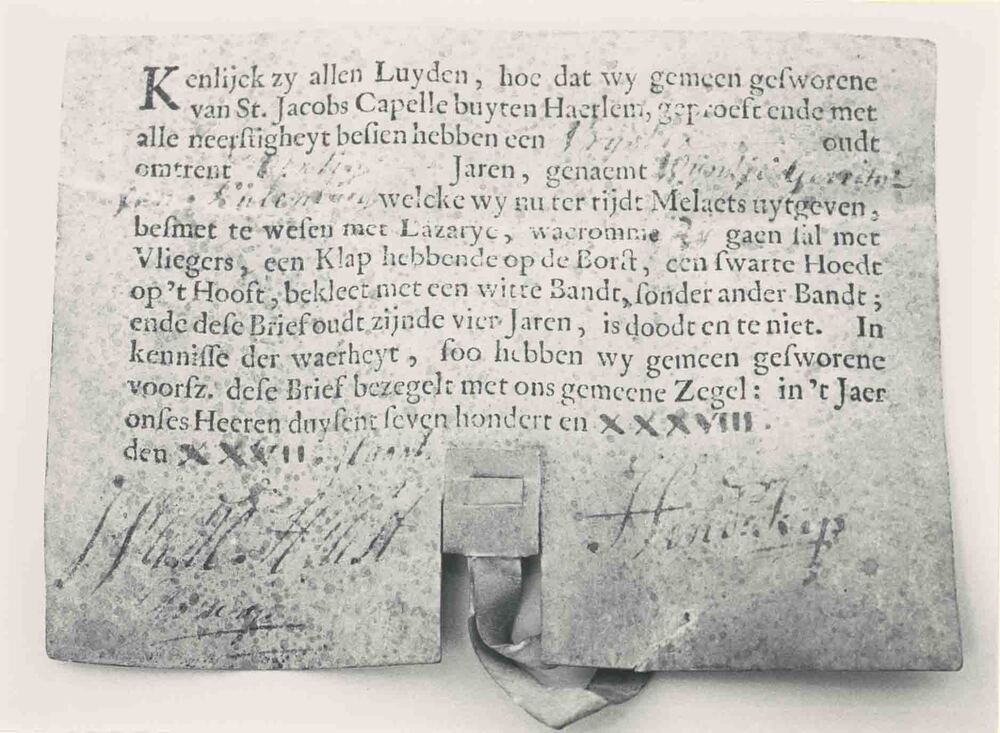 Kenlijck zy allen Luyden, hoe dat wy gemeen gesworene
van St. Jacobs Capelle buyten Haerlem, geproeft ende met
alle neerstigheyt besien hebben een oudt
omtrent Jaren, genaemt
welcke wy nu ter tijdt Melaets uytgeven,
besmet te wesen met Lazarye, waeromme zy gaen sal met
Vliegers, een Klap hebbende op de Borst, een swarte Hoedt
op 't Hooft, bekleet met een witte Bandt, sonder ander Bandt;
ende dese Brief oudt zijnde vier Jaren, is doodt en te niet. In
kennisse der waerheyt, soo hebben wy gemeen gesworene
voorsz. dese Brief bezegelt met ons gemeene Zegel: in 't Jaer
onses Heeren duysent seven hondert en XXXVIII.
den XXVII. Maert